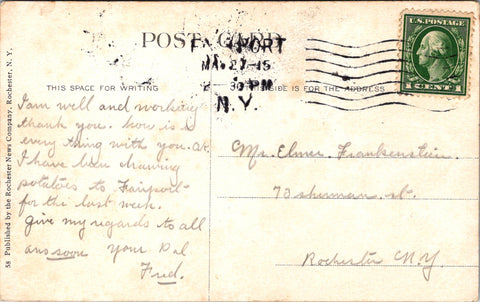 POST CARD
PORT
27-15
30 PM
N.Y.
U.S. POSTAGE
1 CENT 1
THIS SPACE FOR WRITING
SIDE IS FOR THE ADDRESS
58 Published by the Rochester News Company, Rochester, N. Y.
I am well and working
thank you. how is
every thing with you.
I have been drawing
potatoes to Fairport
for the last week.
Give my regards to all
ans soon your Pal
Fred.
Mr. Elmer. Frankenstein.
73 sherman. st.
Rochester N.Y